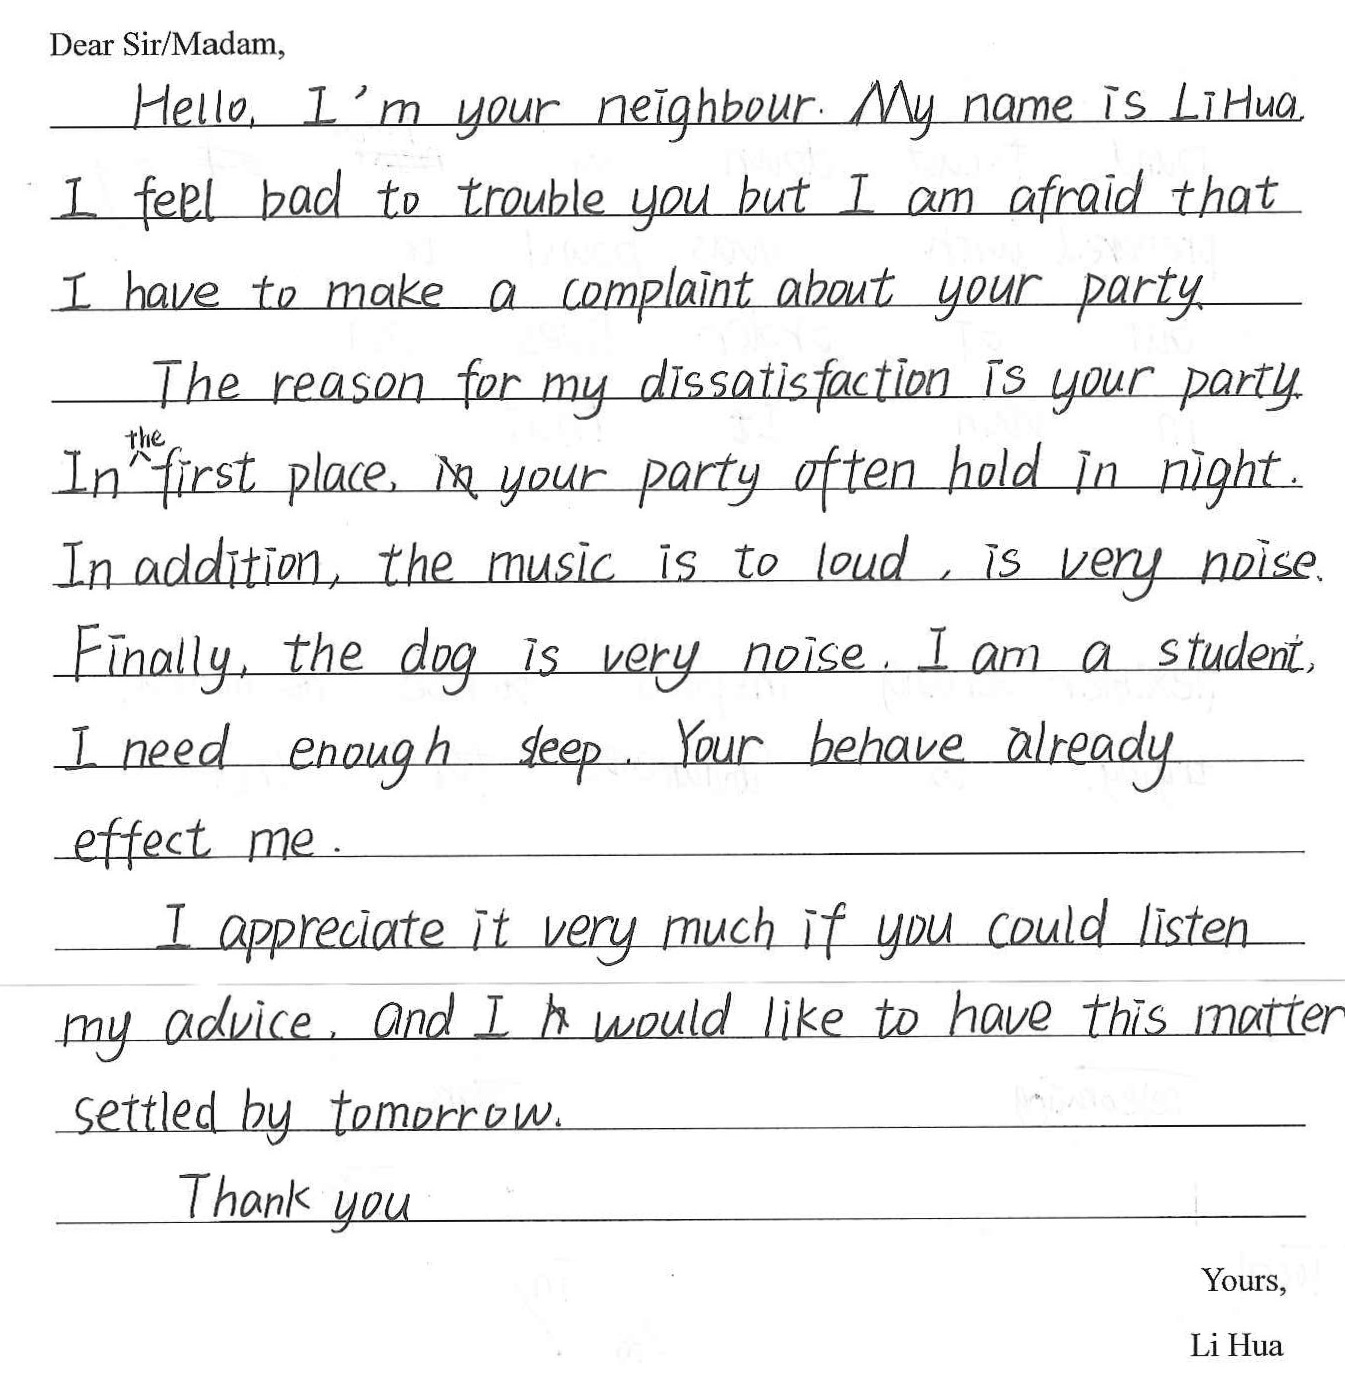 Dear Sir/Madam,
Hello, I'm your neighbour. My name is LiHua.
I feel bad to trouble you but I am afraid that
I have to make a complaint about your party.
The reason for my dissatisfaction is your party.
In the first place, your party often hold in night.
In addition, the music is to loud, is very noise.
Finally, the dog is very noise. I am a student,
I need enough sleep. Your behave already
effect me.
I appreciate it very much if you could listen
my advice, and I would like to have this matter
settled by tomorrow.
Thank you
Yours,
Li Hua